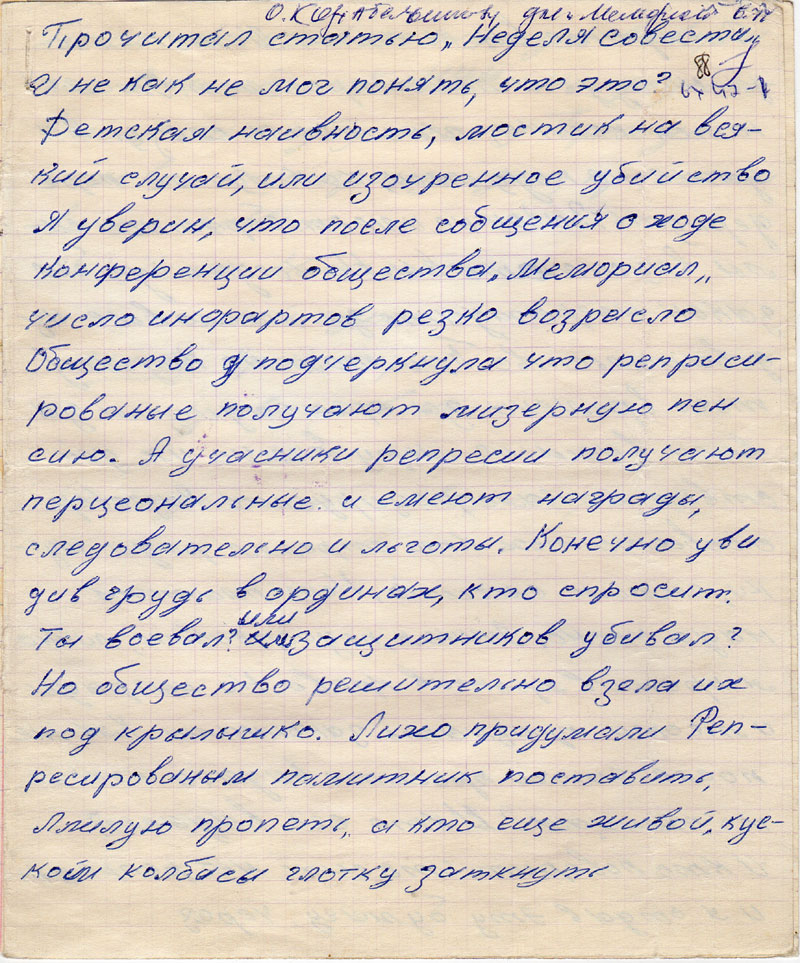 О. К для "Мемориал"
Прочитал статью „Неделя совести„
И не как не мог понять, что это?
88
Детская наивность, мостик на вся-
кий случай, или изочренное убийство
Я уверин, что после собщения о ходе
конференции общества „Мемориал„
число инфартов резко возрасло
Общество подчеркнула что реприси-
рованые получают мизерную пен
сию. А учасники репресии получают
перцеональные. и емеют награды,
следовательно и льготы. Конечно уви
див грудь в ординах, кто спросит.
или
Ты воевал? защитников убивал?
Но общество решительно взела их
под крылышко. Лихо придумали Реп-
ресированым памитник поставить,
Алилую пропеть, а кто еще живой, кус-
ком колбасы глотку заткнуть